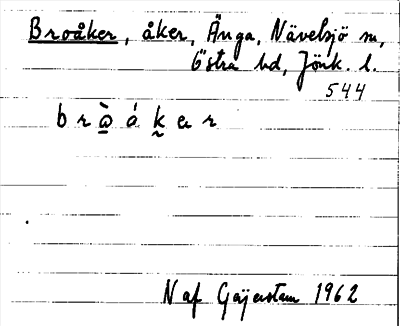 Broåker, åker, Änga, Nävelsjö sn,
Östra hd, Jönk. l.
544
N af Geijerstam 1962